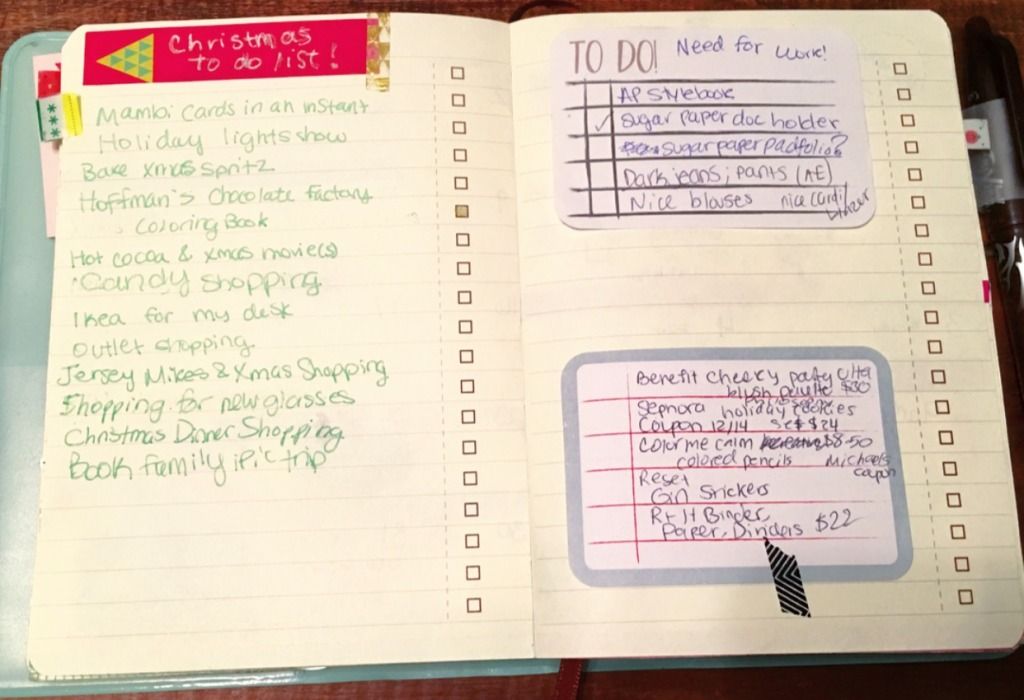 Christmas
to do list!
Mambi Cards in an instant
Holiday lights show
Bake Xmas Spritz
Hoffman's Chocolate Factory
Coloring Book
Hot cocoa & Xmas movie(s)
Candy Shopping
Ikea for my desk
Outlet shopping
Jersey Mikes & Xmas Shopping
Shopping for new glasses
Christmas Dinner Shopping
Book family iPic trip
TO DO! Need for work!
AP Stylebook
✓ Sugar paper doc holder
Sugar paper padfolio?
Dark jeans; pants (AE)
Nice blouses nice cardi/
blazer
Benefit Cheeky party Ulta
blush palette $30
Sephora holiday cookies
Coupon 12/14 set $24
Color me calm $8.50
colored pencils Michaels
coupon
Reset
Girl Stickers
R+H Binder,
Paper, Dividers $22